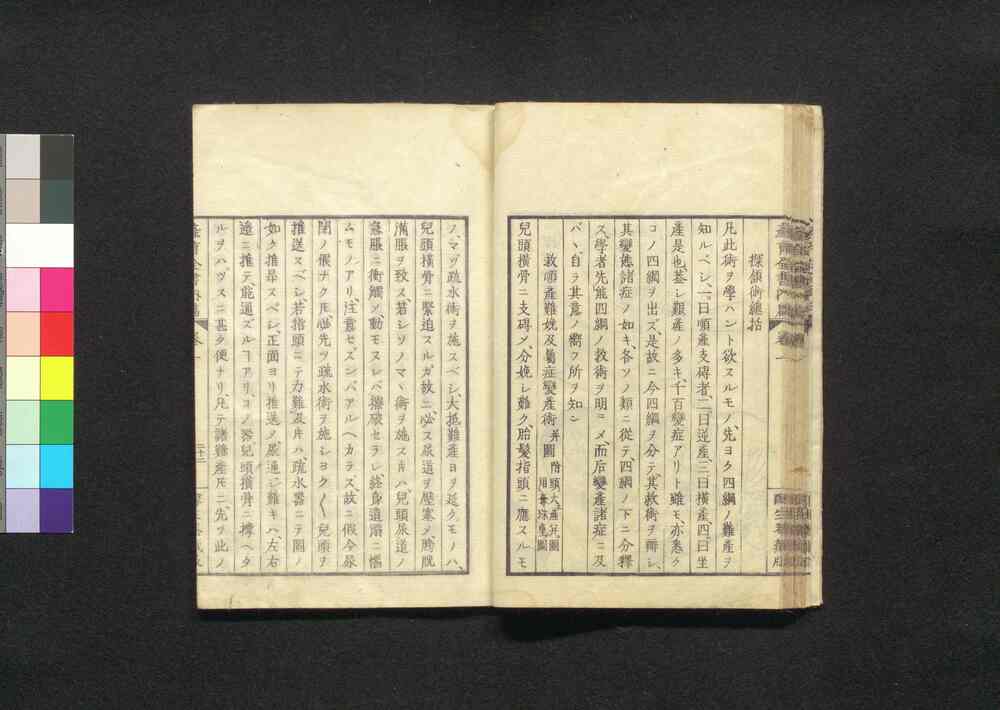 探頷術總括
凡此術ヲ學ハント欲スルモノ先ヨク四綱ノ難產ヲ
知ルベシ、一曰順產支碍者、二曰逆產、三曰橫產、四曰坐
產是也、葢シ難產ノ多キ、千百變症アリト雖モ、亦悉ク
コノ四綱ヲ出ズ、是故ニ今四綱ヲ分テ、其救術ヲ辨シ、
其變態諸症ノ如キ、各ソノ類ニ從テ、四綱ノ下ニ分釋
ス、學者先能四綱ノ救術ヲ明ニメ、而后變產諸症ニ及
バヽ、自ラ其意ノ嚮フ所ヲ知ン
救順產難娩及
症變產術
兒頭橫骨ニ支碍ソ、分娩シ難ク、胎髮指頭ニ應スルモ
ノ、マヅ疏水術ヲ施スベシ、大抵難產ヨヲ延クモノハ、
兒頭橫骨ニ緊迫スルガ故ニ、必ス尿道ヲ壓塞メ、膀胱
滿脹ヲ致ス、若シソノマヽ術ヲ施ス片ハ、兒頭尿道ノ
ムモノアリ、注意セズンバアルヘカラズ、故ニ假令尿
閉ノ候ナク圧、必先ツ疏水術ヲ施シ、ヨク〱兒頭ヲ
推送スベシ、若指頭ニテ力難及片ハ、疏水器ニテ圖ノ
如ク推舉スベシ、正面ヨリ推送メ、尿通ジ難キハ左右
邊ニ推テ、能通ズルヿアリ、コノ器、兒頭橫骨ニ
ルヲハヅスニ甚タ便ナリ、凡テ諸難產圧ニ先ツ此ノ